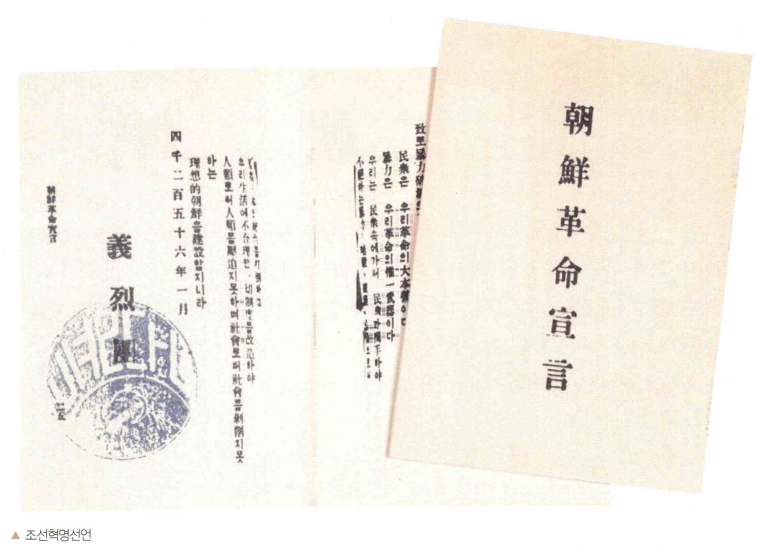 朝鮮革命宣言
民衆은 우리革命의大本營이다
暴力은 우리革命의惟一武器이다
우리는 民衆속에가서 民衆과携手하야
不絕하는暴力
우리生活에不合理한一切制度를改造하야
人類로써人類를壓迫지못하며社會로써社會를剝削지못
하는
理想的朝鮮을建設할지니라
四千二百五十六年一月
義烈團
朝鮮革命宣言
二五
▲ 조선혁명선언